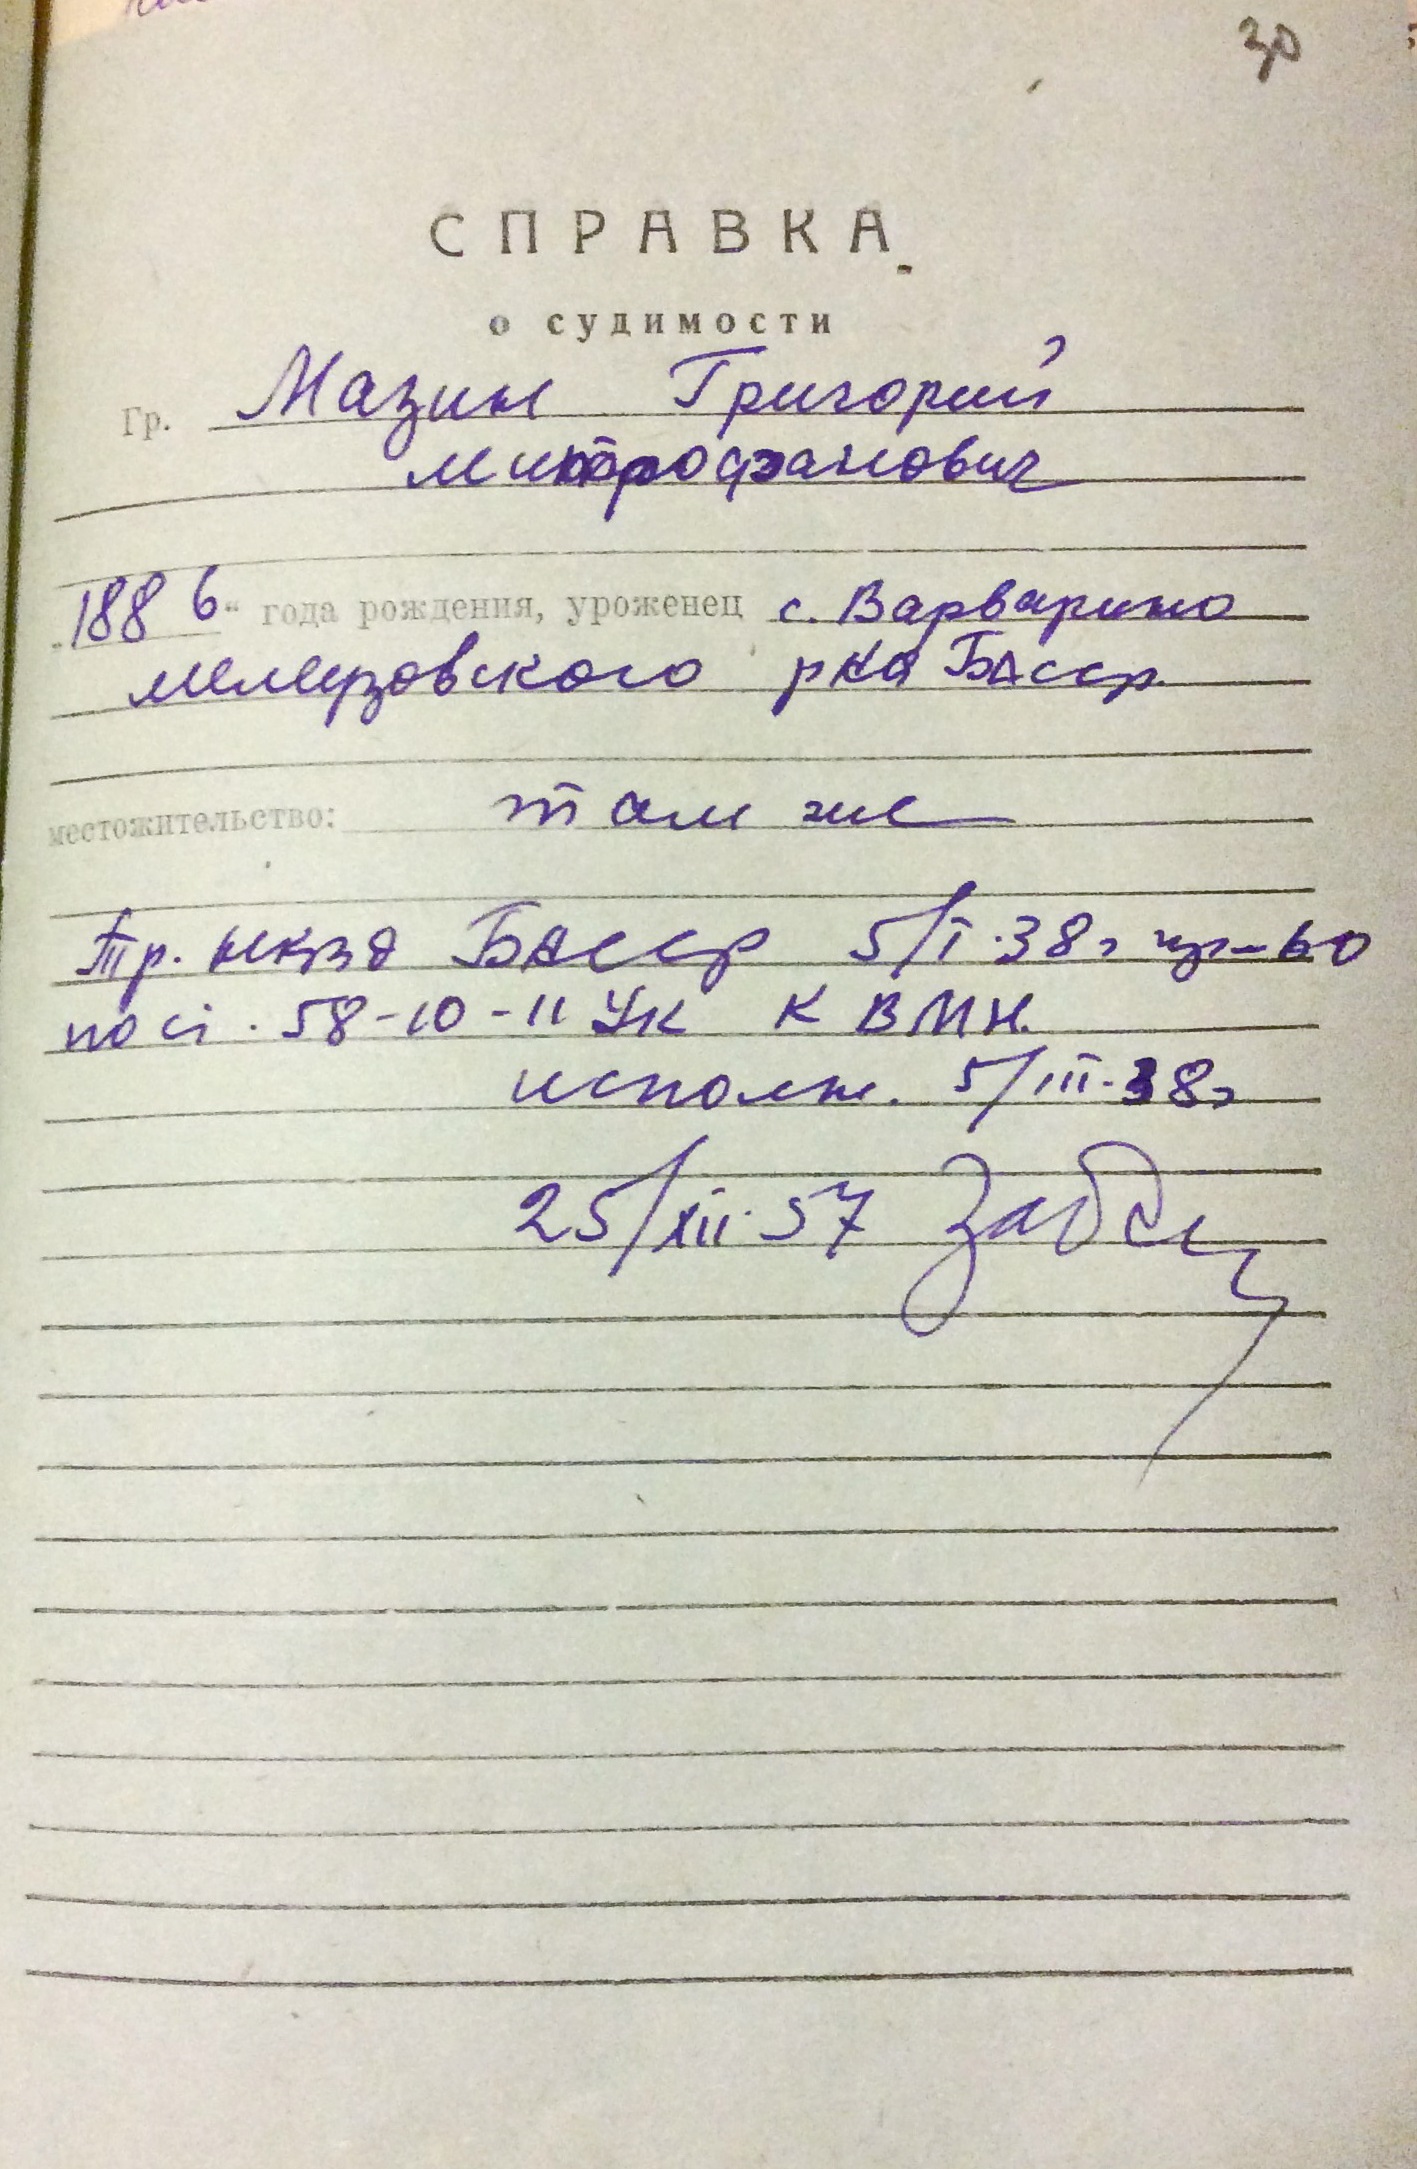 30
СПРАВКА
о судимости
Гр. Мазин Григорий
Митрофанович
1886 года рождения, уроженец с. Варварино
Мелеузовского р-на БАССР.
местожительство: там же
Тр. НКВД БАССР 5/I-38г
по ст. 58-10-11 УК к ВМН.
исполн. 5/III-38г
25/XII-57